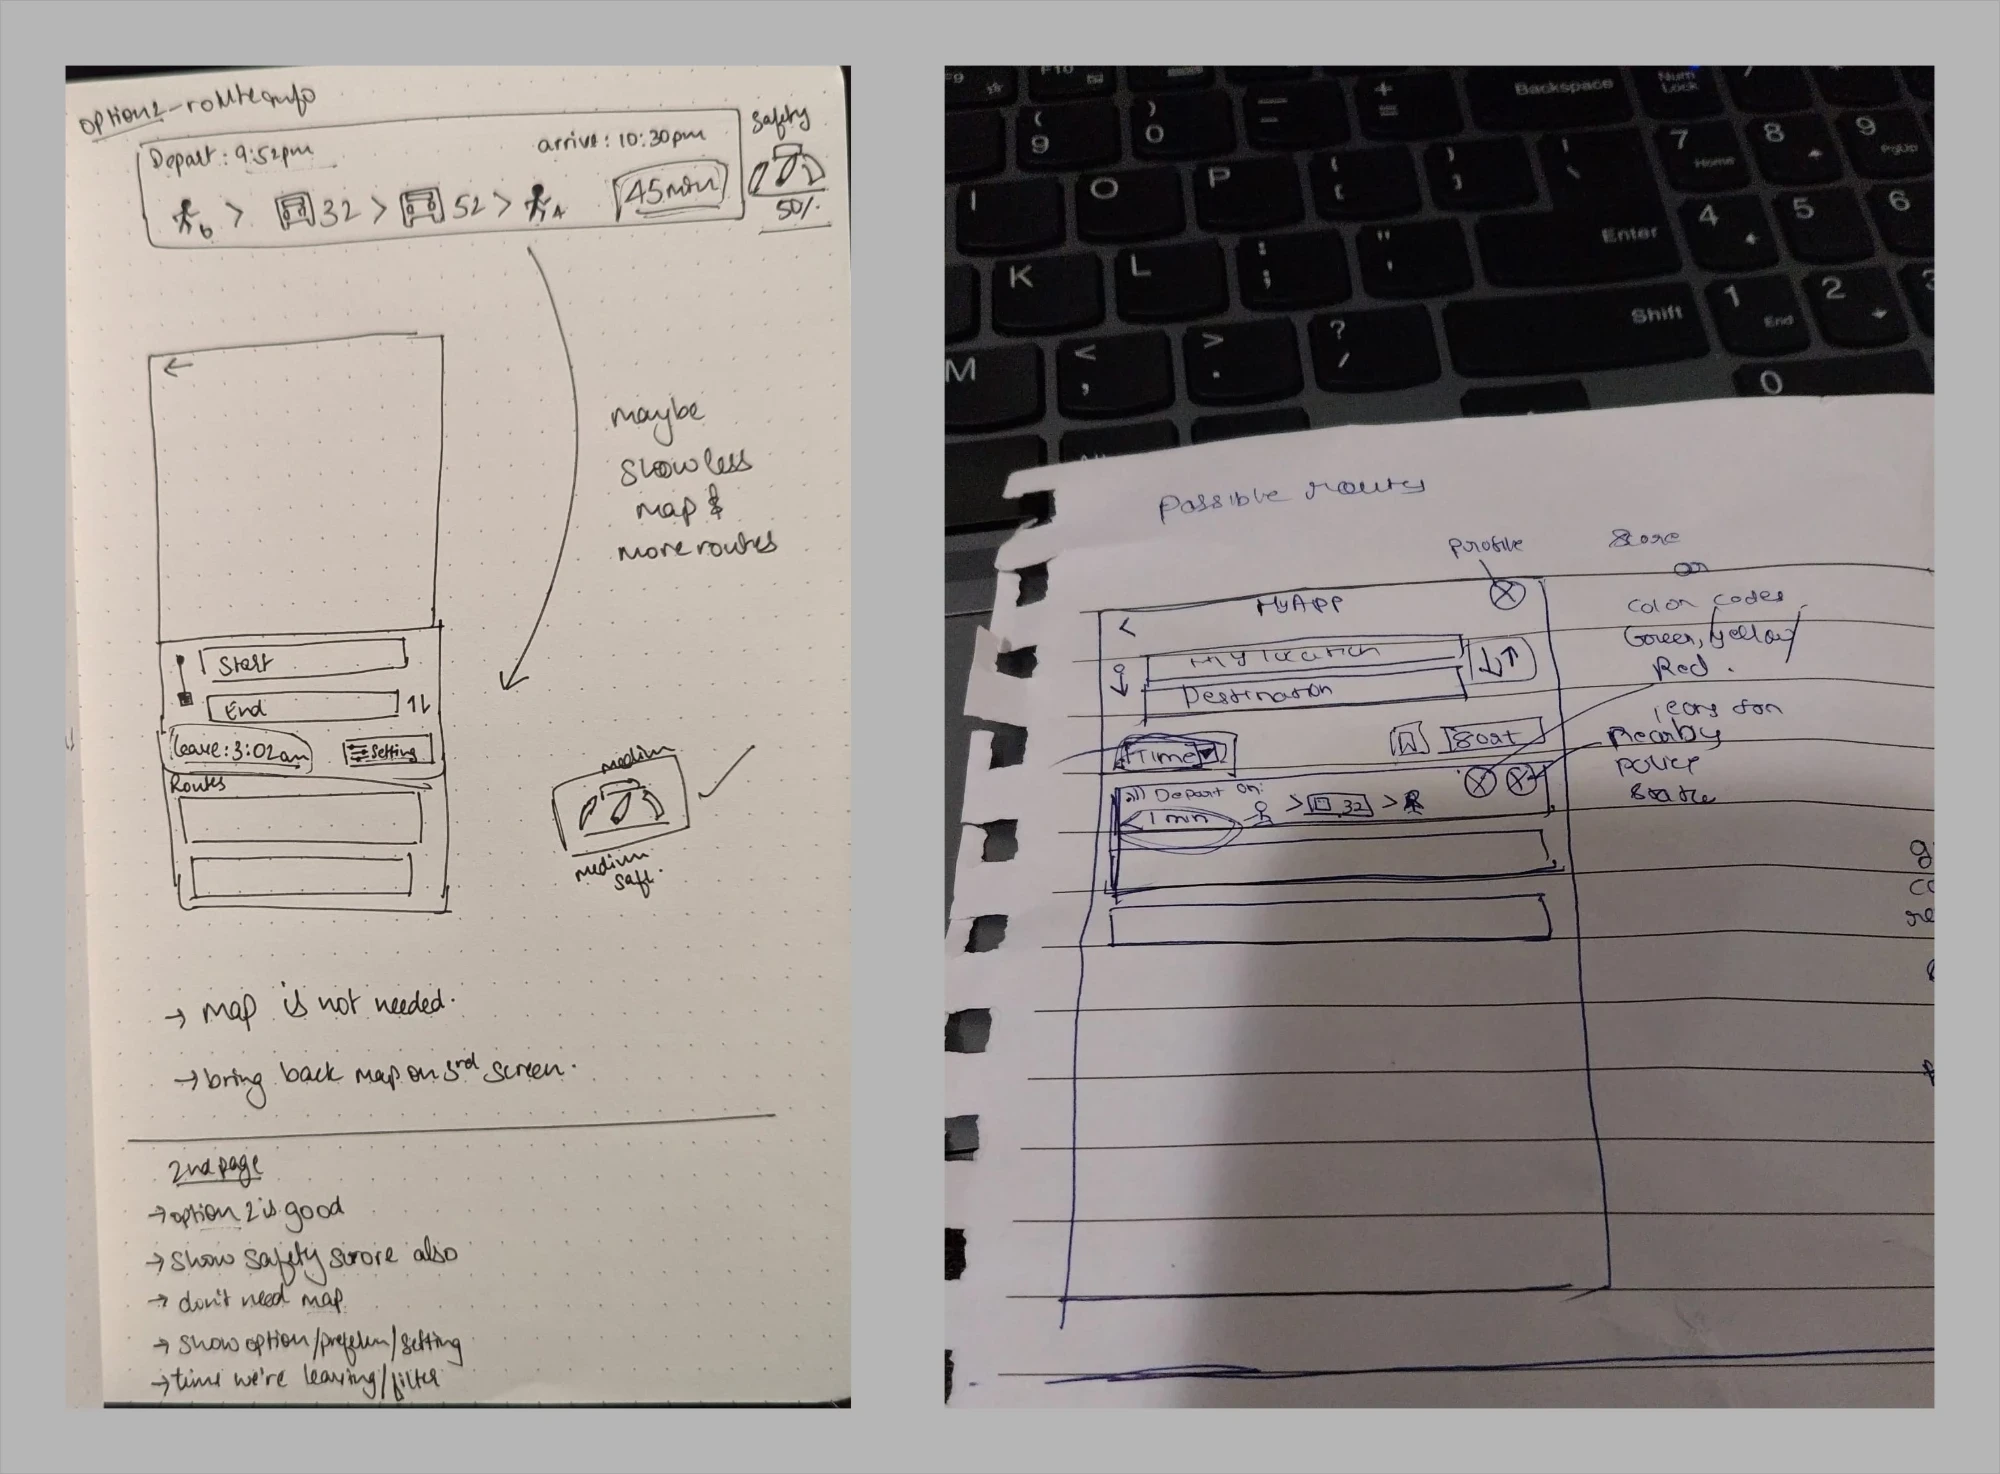 option2-routeinfo
Depart: 9:52pm
arrive: 10:30pm
safety
6 > 32 > 52 > 4
45min
50%
maybe
show less
map &
more routes
Start
End
leave: 3:02am
Setting
Routes
medium
medium
safe.
→ map is not needed.
→ bring back map on 3rd screen.
2nd page
→ option 2 is good
→ show safety srore also
→ don't need map
→ show option/preferen/setting
→ time we're leaving/filter
F9
F10
Backspace
Num
Lock
7
Home
8
9
PgUp
(
9
)
0
—
-
+
=
I
O
P
{
[
}
]
|
\
4
5
6
K
L
:
;
"
'
Enter
1
End
2
3
M
<
,
>
.
?
/
Shift
0
Possible routes
profile
Score
or
MyApp
<
Color codes
Green, yellow
Red.
My location
Destination
icons for
Nearby
police
Time
Sort
Depart on:
<1 min
> 32 >